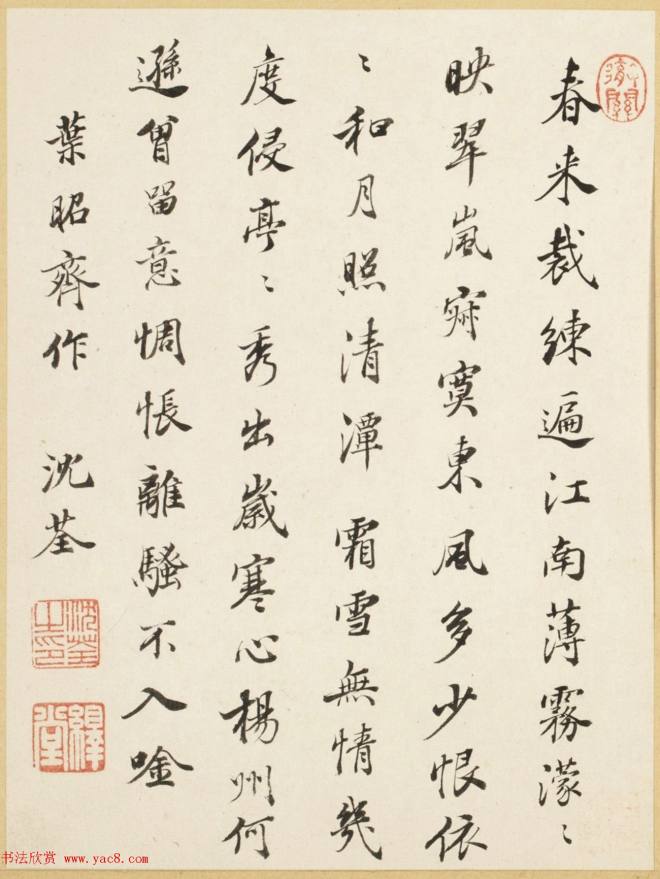 春来裁練遍江南薄霧濛〻
映翠嵐寂寞東風多少恨依
〻和月照清潭 霜雪無情幾
度侵亭〻秀出歲寒心楊州何
遜曾留意惆悵離騷不入唫
葉昭齊作 沈荃
沈荃之印
書法欣赏 www.yac8.com